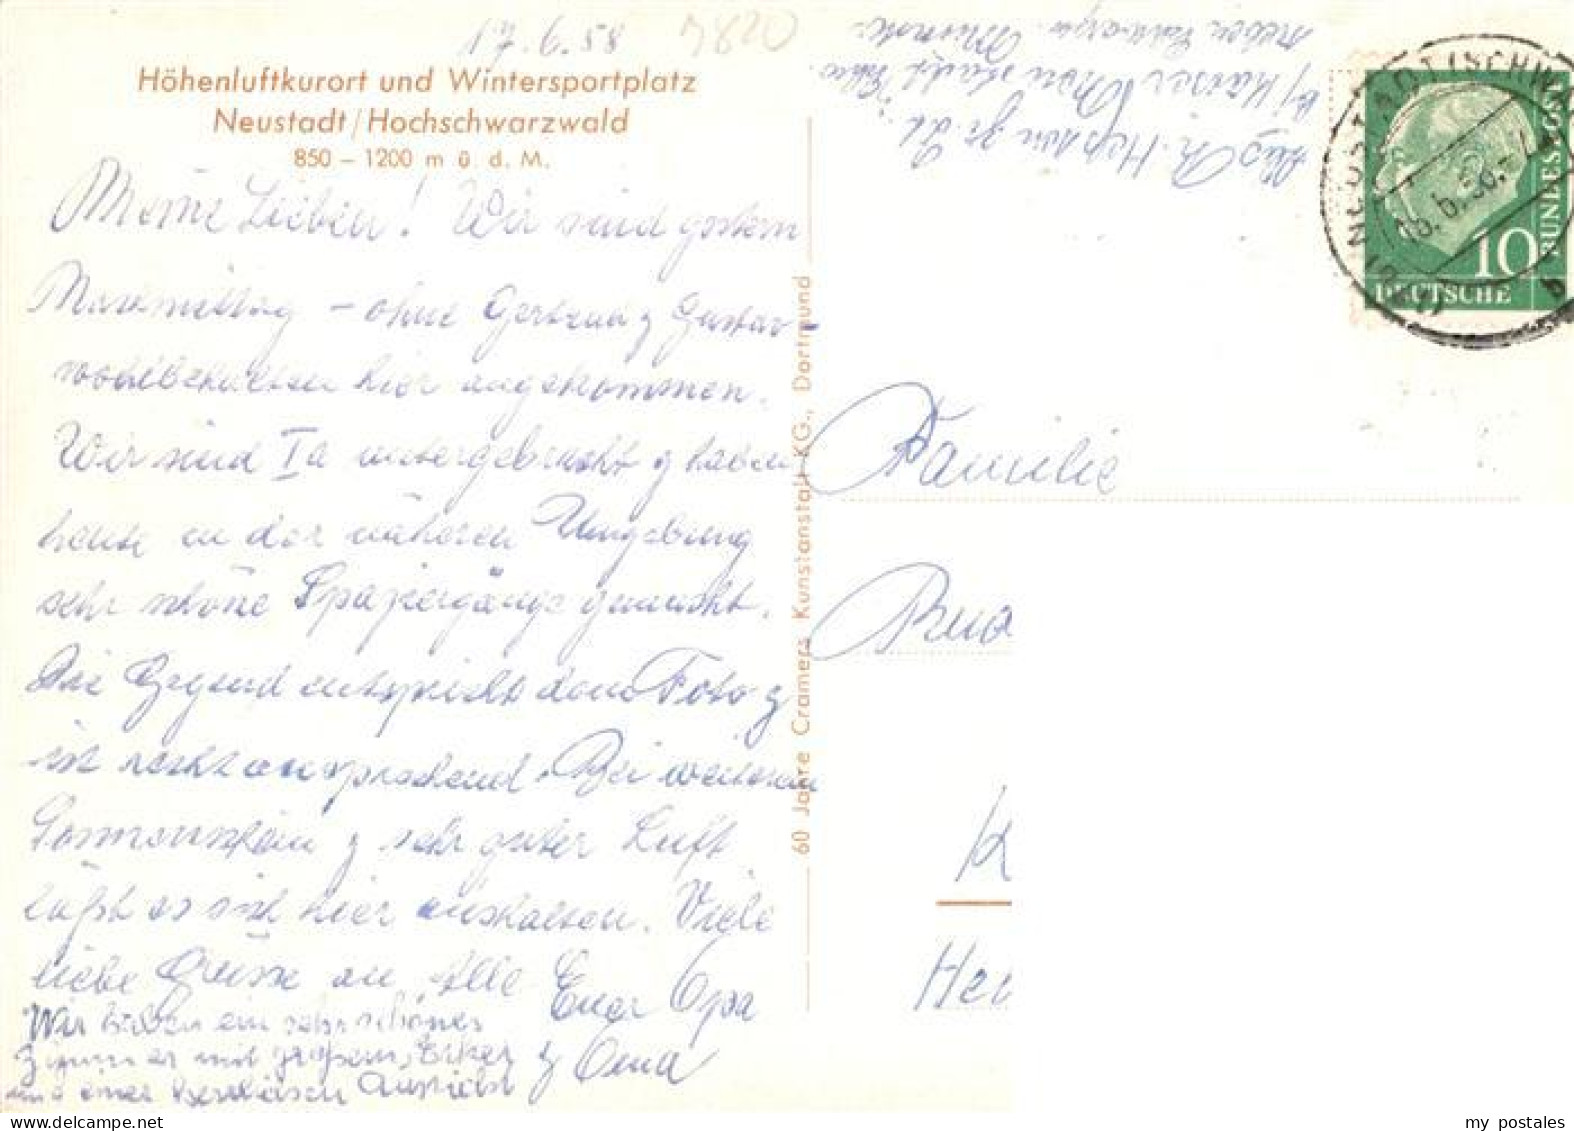 17.6.58 7820
Höhenluftkurort und Wintersportplatz
Neustadt/Hochschwarzwald
850 – 1200 m ü. d. M.
Meine Lieben! Wir sind gestern
Nachmittag – ohne Gertrud & Gustav –
wohlbehalten hier angekommen.
Wir sind Ia untergebracht & haben
heute in der näheren Umgebung
sehr schöne Spaziergänge gemacht.
Die Gegend entspricht dem Foto &
ist recht ansprechend. Bei weiterem
Sonnenschein & sehr guter Luft
läßt es sich hier aushalten. Viele
liebe Grüsse an Alle
Euer Opa
& Oma
Wir haben ein sehr schönes
Zimmer mit großem Erker
und einer herrlichen Aussicht
60 Jahre Cramers Kunstanstalt KG., Dortmund
NEUSTADT (SCHWAR
18.6.58.
b
10
DEUTSCHE
BUNDESPOST
Familie
Rud
K
Hei
my postales